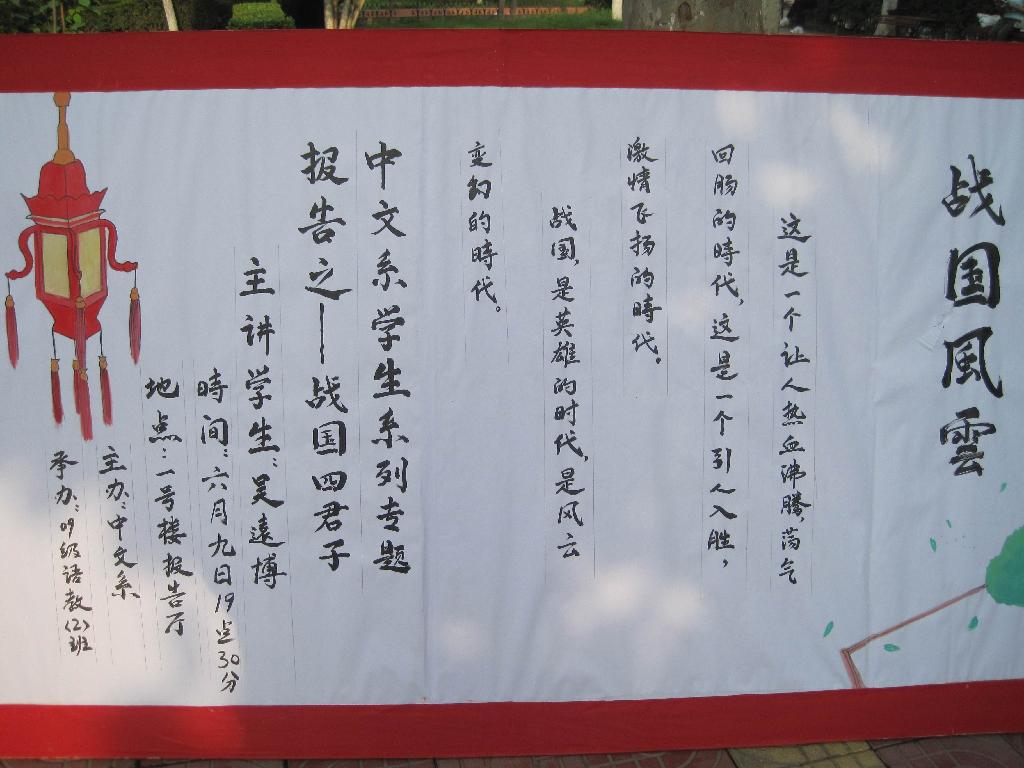 战国風雲
这是一个让人热血沸腾,荡气
回肠的時代,这是一个引人入胜,
激情飞扬的時代。
战国,是英雄的时代,是风云
变幻的時代。
中文系学生系列专题
报告之——战国四君子
主讲学生:吴遠博
時间:六月九日19点30分
地点:一号楼报告厅
主办:中文系
承办:09级语教(2)班